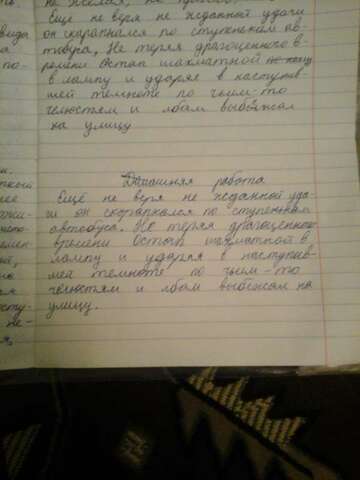 Ещё не веря не жеданной удачи
он скорапкался по ступенькам ав-
тобуса. Не теряя драгоценного в-
ремени Остап шахматной
в лампу и ударяя в наступив-
шей темноте по чьим-то
челюстям и лбам выбежал
на улицу
Домашняя работа
Ещё не веря не жеданной уда-
чи он скорапкался по ступенькам
автобуса. Не теряя драгоценного
времени Остап шахматной в
лампу и ударяя в наступив-
шей темноте по чьим-то
челюстям и лбам выбежал на
улицу.